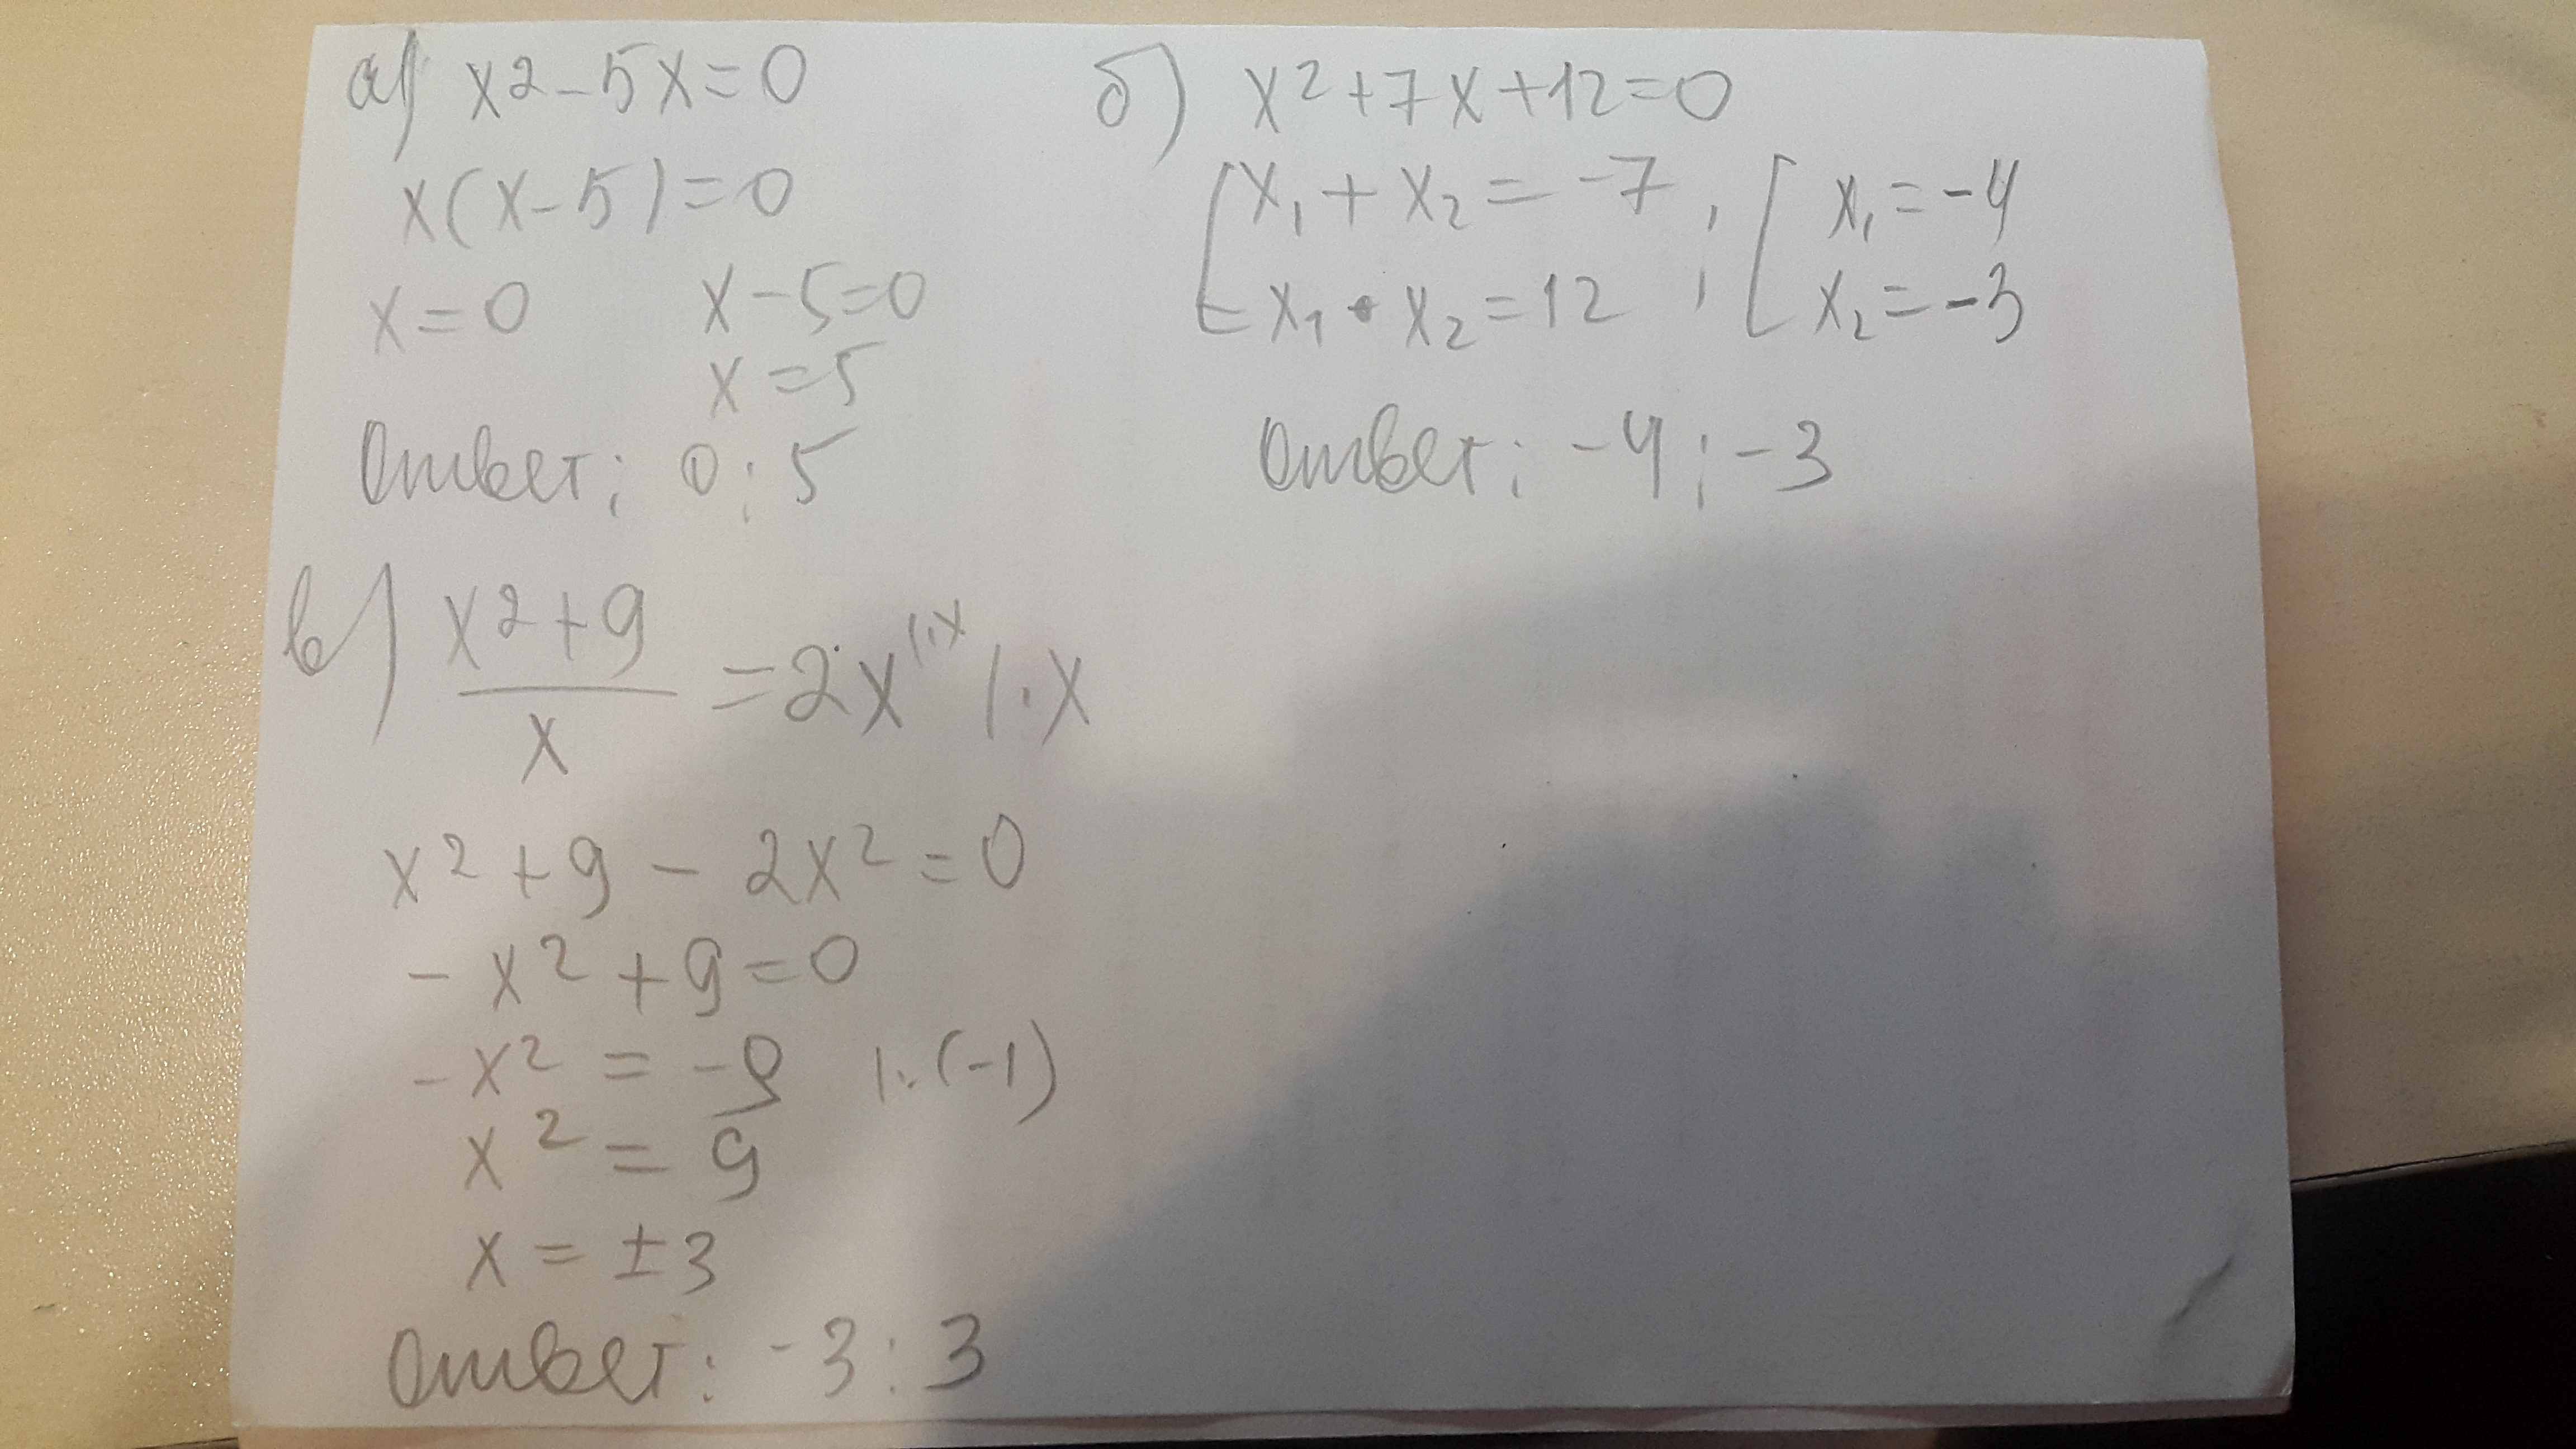 а) x2-5x=0
x(x-5)=0
x=0 x-5=0
x=5
Ответ: 0; 5
б) x²+7x+12=0
[x₁+x₂=-7 ; [x₁=-4
x₁•x₂=12 ; x₂=-3
Ответ: -4; -3
в) x²+9
x
=2x |·x |·x
x²+9-2x²=0
-x²+9=0
-x²=-9 |·(-1)
x²=9
x=±3
Ответ: -3; 3